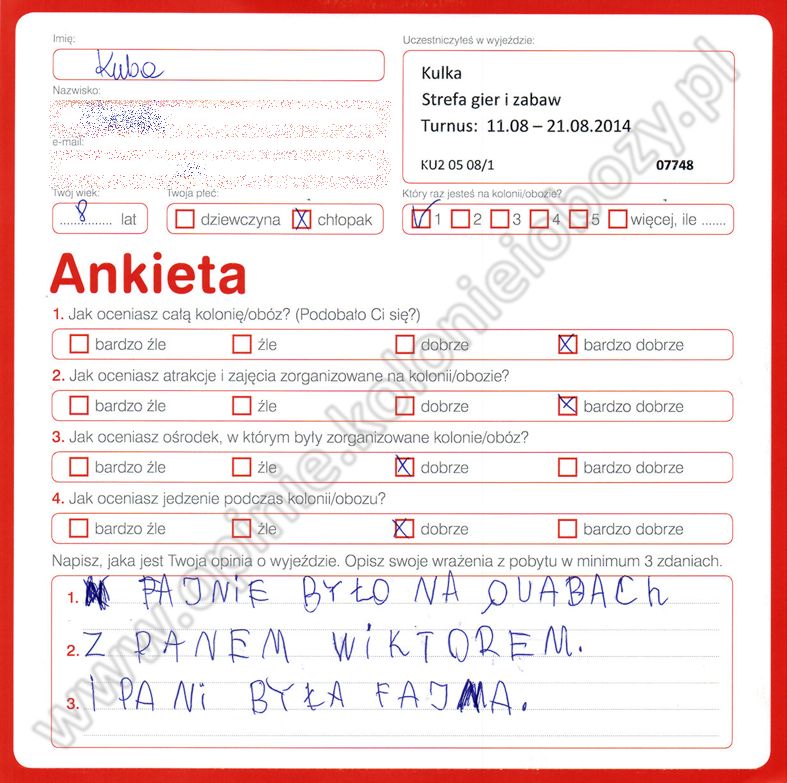 Imię:
Kuba
Nazwisko:
e-mail:
Twój wiek:
8 lat
Twoja płeć:
dziewczyna chłopak
Uczestniczyłeś w wyjeździe:
Kulka
Strefa gier i zabaw
Turnus: 11.08 – 21.08.2014
KU2 05 08/1 07748
Który raz jesteś na kolonii/obozie?
1 2 3 4 5 więcej, ile .......
Ankieta
1. Jak oceniasz całą kolonię/obóz? (Podobało Ci się?)
bardzo źle źle dobrze bardzo dobrze
2. Jak oceniasz atrakcje i zajęcia zorganizowane na kolonii/obozie?
bardzo źle źle dobrze bardzo dobrze
3. Jak oceniasz ośrodek, w którym były zorganizowane kolonie/obóz?
bardzo źle źle dobrze bardzo dobrze
4. Jak oceniasz jedzenie podczas kolonii/obozu?
bardzo źle źle dobrze bardzo dobrze
Napisz, jaka jest Twoja opinia o wyjeździe. Opisz swoje wrażenia z pobytu w minimum 3 zdaniach.
1. FAJNIE BYŁO NA QUABACH
2. Z PANEM WIKTOREM.
3. I PANI BYŁA FAJNA.
www.opinie.kolonieiobozy.pl